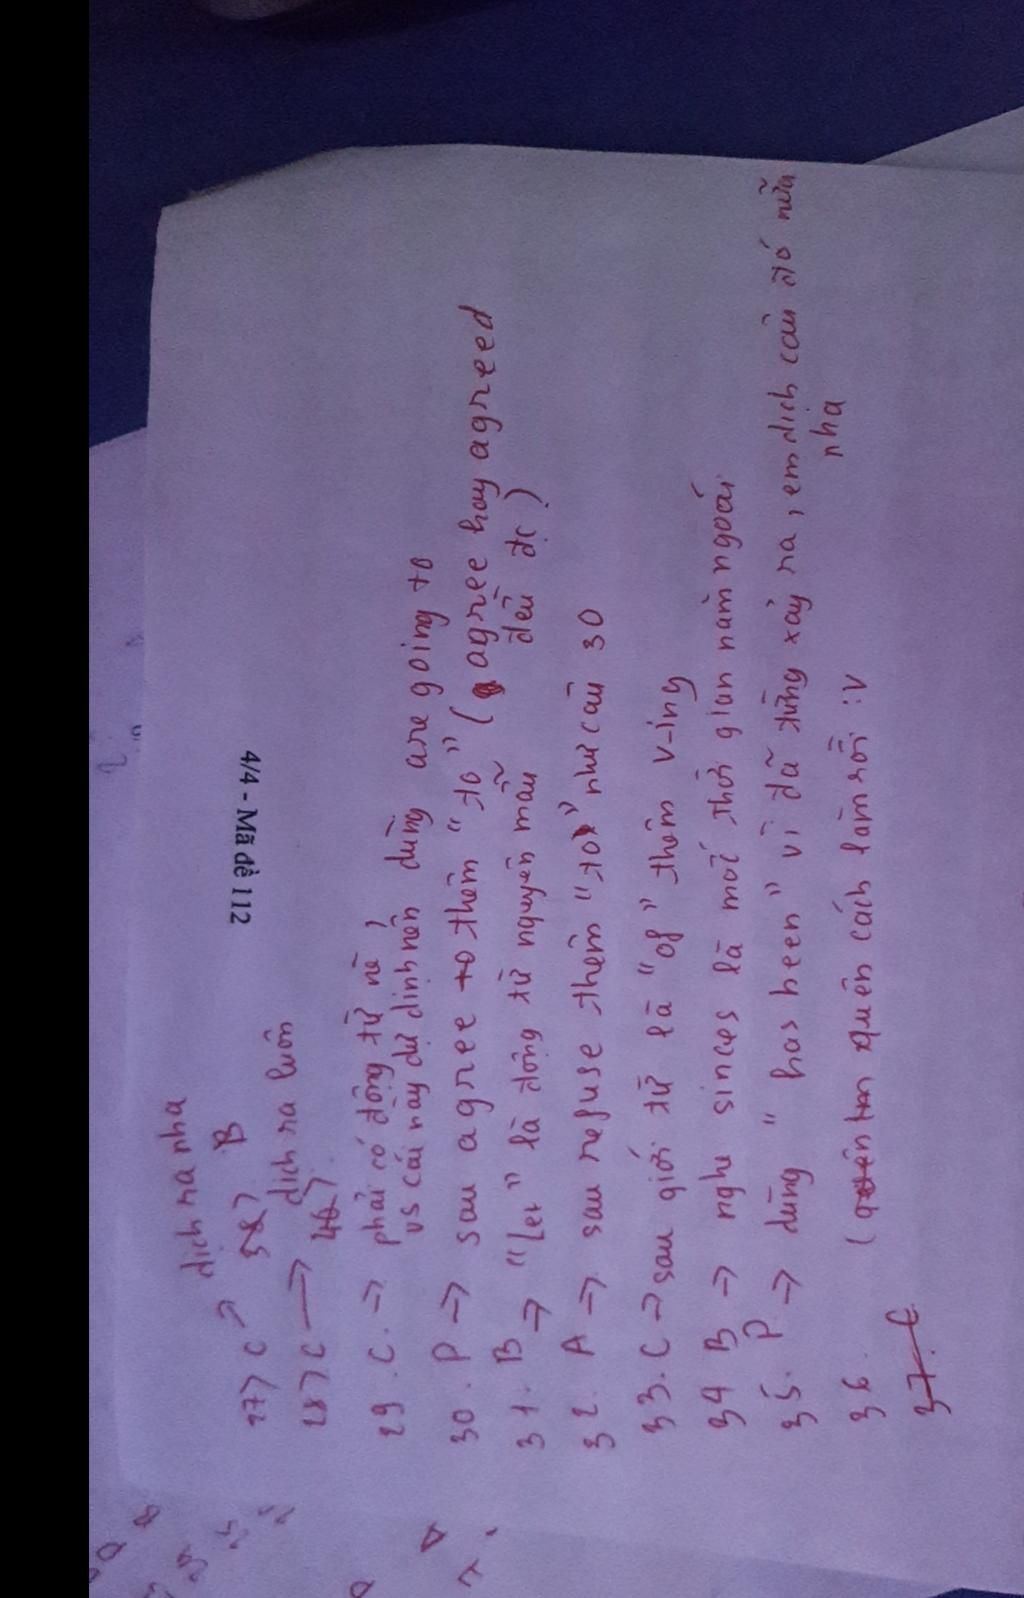 4/4 - Mã đề 112
dịch ra nha
27> C → 38> B
28> C → dịch ra luôn
40>
29. C. → phải có động từ nè,
vs cái này dự định nên dùng are going to
30. D → sau agree to thêm "to" ( agree hay agreed
đều đc )
31. B → "Let" là động từ nguyên mẫu
32. A → sau refuse thêm "to" như câu 30
33. C → sau giới từ là "of" thêm V-ing
34 B → nghe sinces là mới thời gian năm ngoái
35. D → dùng " has been" vì đã từng xảy ra, em dịch câu đó nữa
nha
36. ( quên cách làm rồi :V
37. C